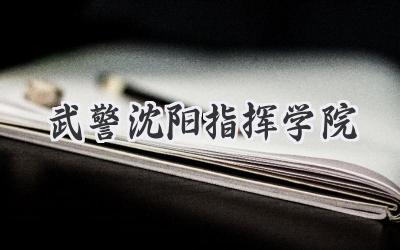 武警沈阳指挥学院